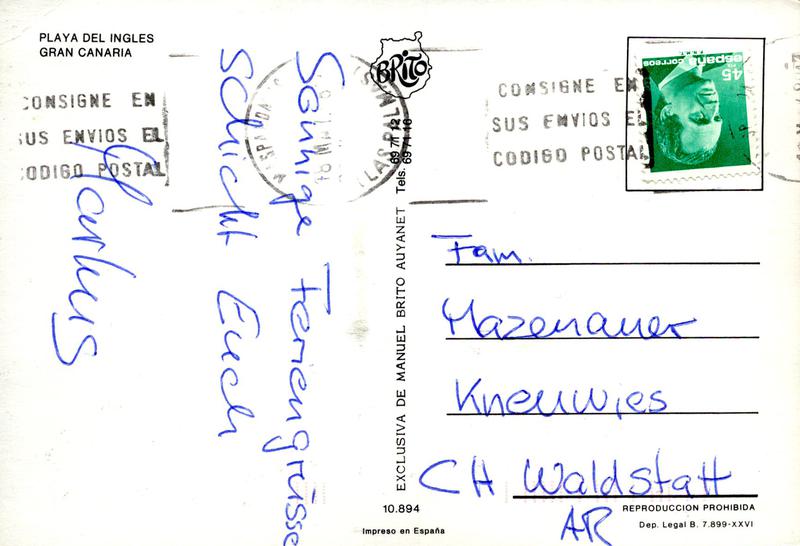 PLAYA DEL INGLES
GRAN CANARIA
CONSIGNE EN
SUS ENVIOS EL
CODIGO POSTAL
Sonnige Feriengrüsse
schickt Euch
Markus
BRITO
Tels. 69 71 12
69 74 16
EXCLUSIVA DE MANUEL BRITO AUYANET
CONSIGNE EN
SUS ENVIOS EL
CODIGO POSTAL
45
PTS
españa correos
Fam.
Mazenauer
Kneuwies
CH Waldstatt
AR
10.894
Impreso en España
REPRODUCCION PROHIBIDA
Dep. Legal B. 7.899-XXVI